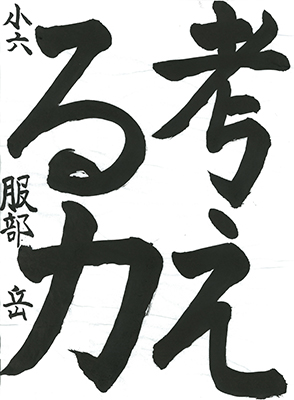 考え
る力
小六 服部 岳